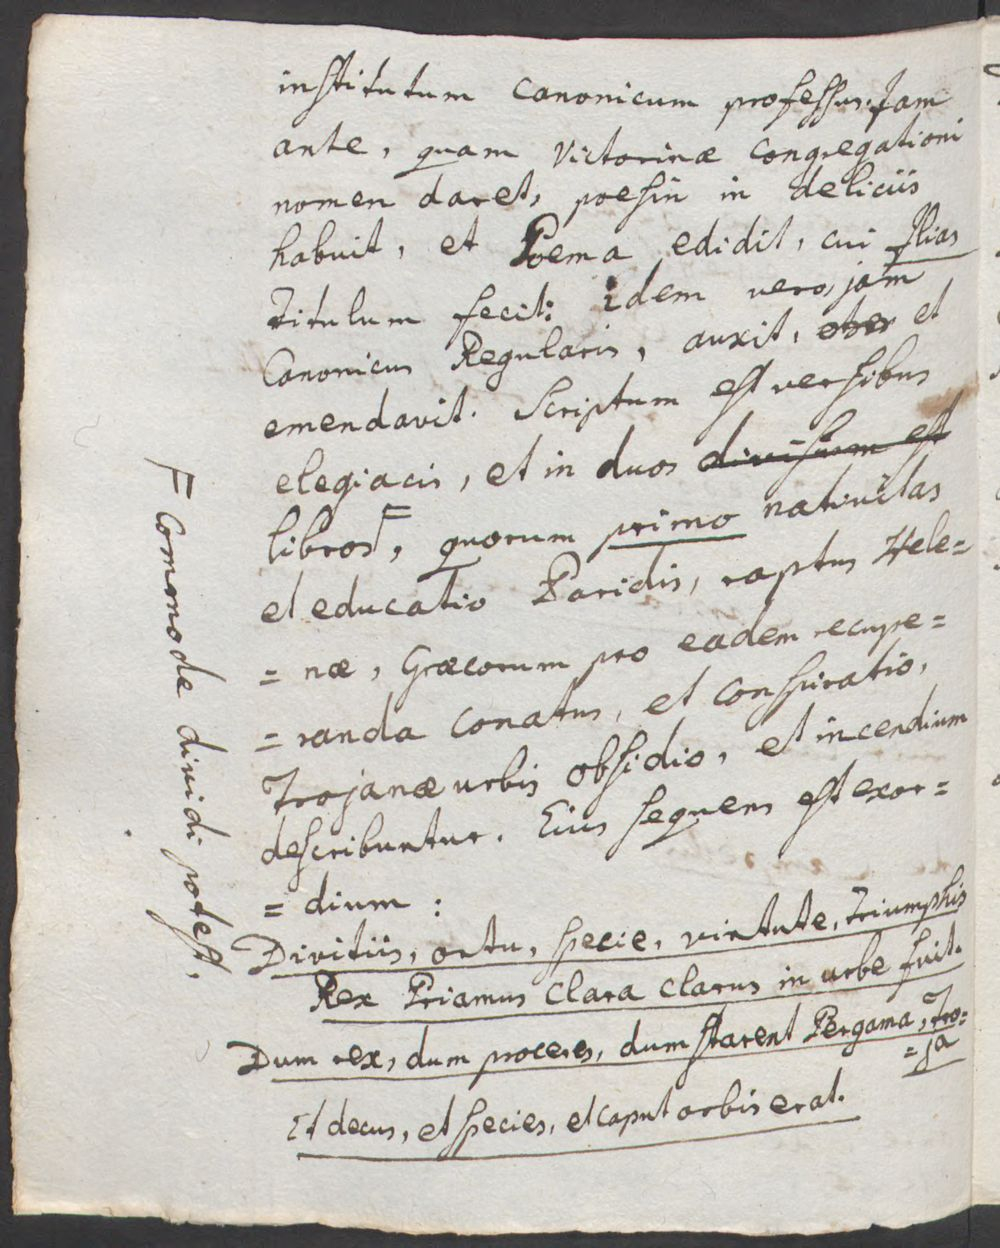 institutum canonicum professus. Jam
ante, quam Victorinæ congregationi
nomen daret, poesin in deliciis
habuit, et Poema edidit, cui Ilias
titulum fecit: idem vero, jam
Canonicus Regularis, auxit, et
emendavit. Scriptum est versibus
elegiacis, et in duos divisum est
libros F, quorum primo nativitas
et educatio Paridis, raptus Hele=
=næ, Græcorum pro eadem recupe=
=randa conatus, et conspiratio,
Trojanæ urbis obsidio, et incendium
describuntur. Eius sequens est exor=
=dium:
Divitiis, ortu, specie, virtute, triumphis
Rex Priamus clara clarus in urbe fuit.
Dum rex, dum proceres, dum starent Pergama, Tro=
=ja
Et decus, et species, et caput orbis erat.
F Commode dividi potest,